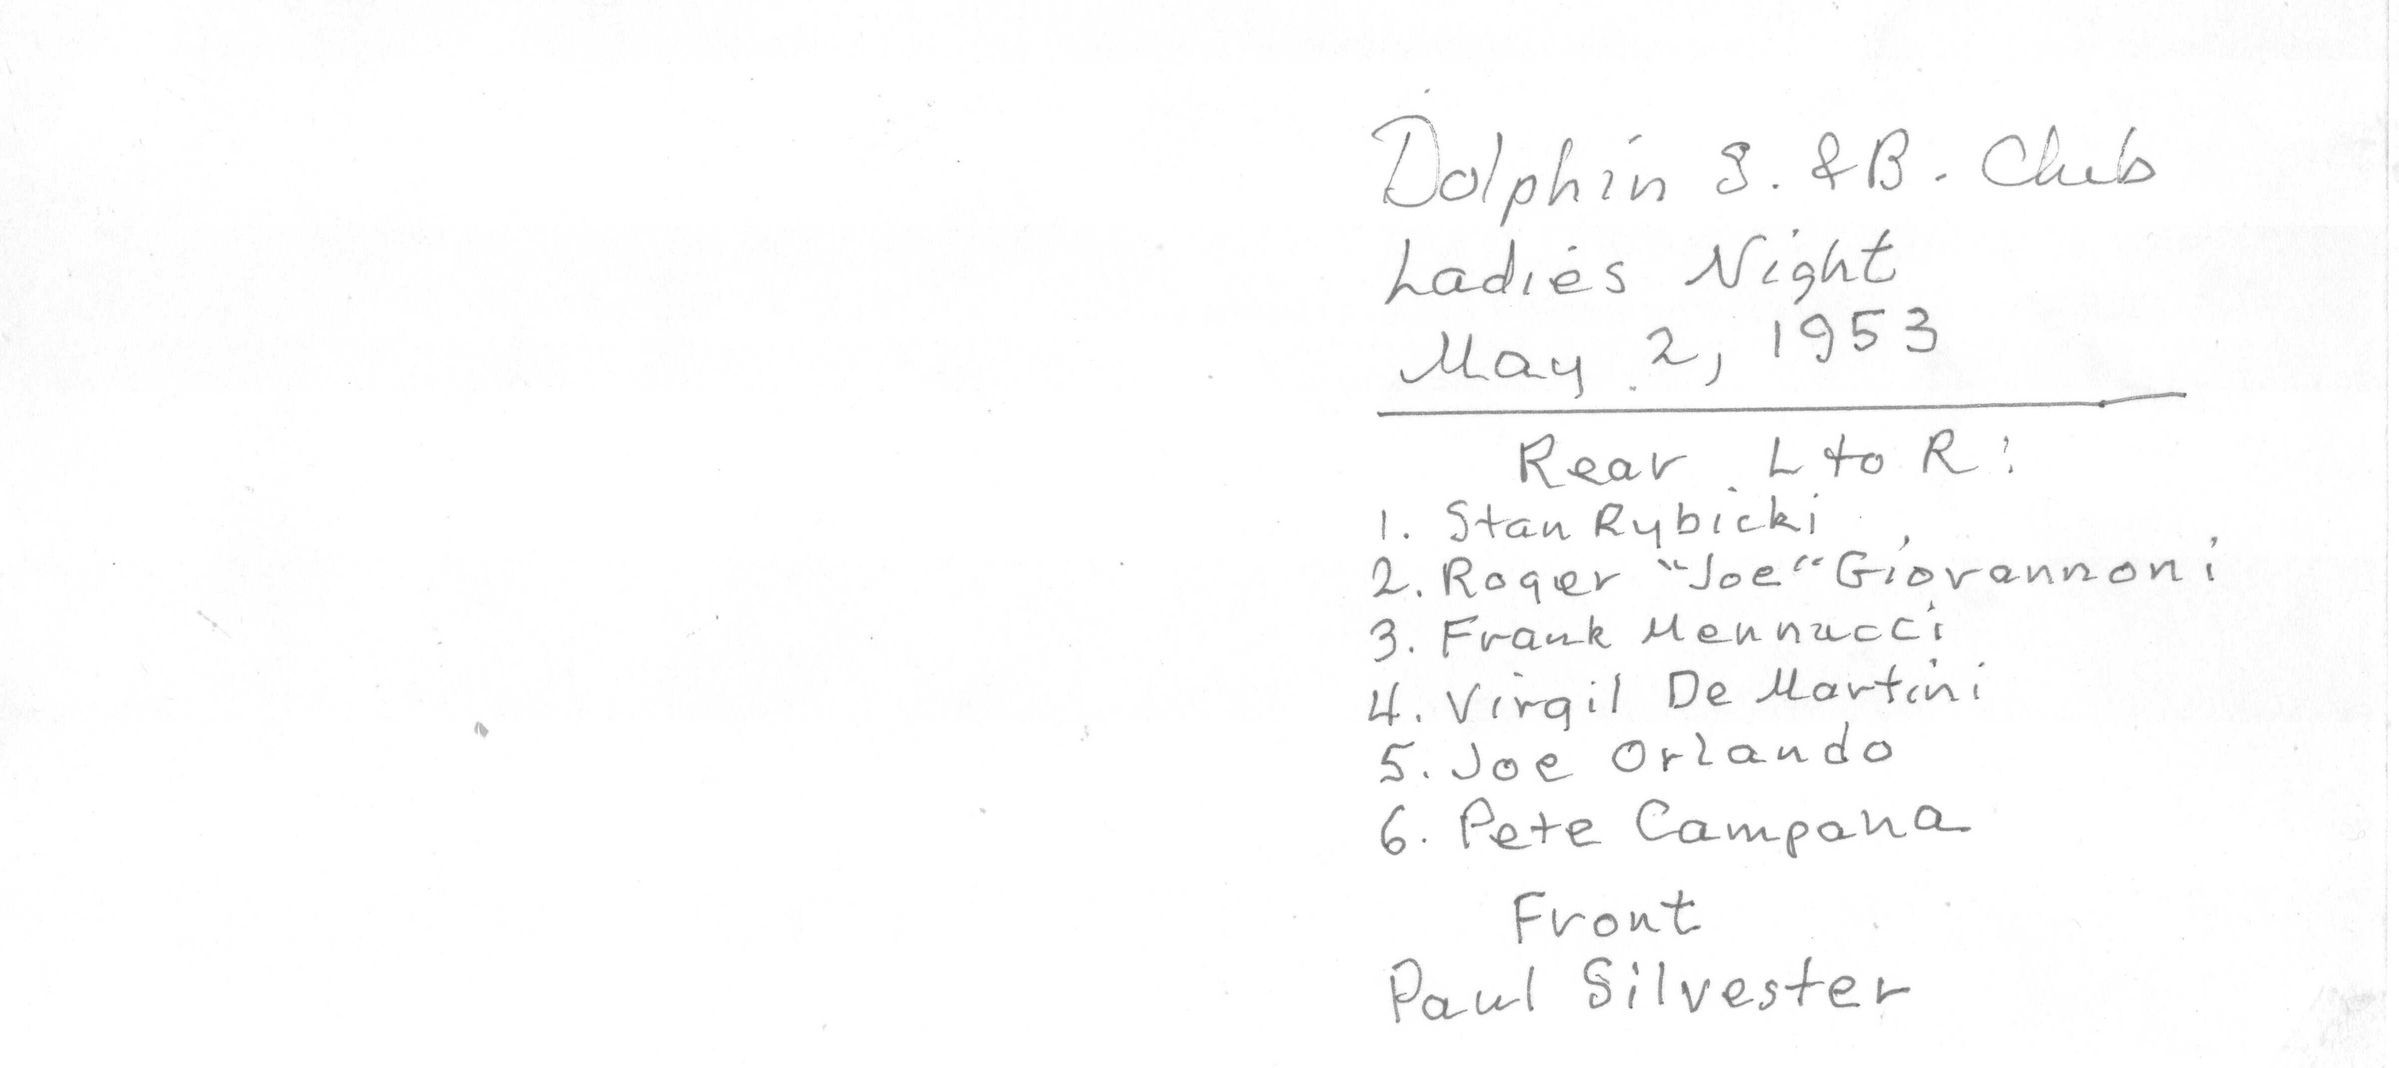 Dolphin S. & B. Club
Ladies Night
May 2, 1953
Rear L to R:
1. Stan Rybicki
2. Roger "Joe" Giovannoni
3. Frank Mennucci
4. Virgil De Martini
5. Joe Orlando
6. Pete Campana
Front
Paul Silvester